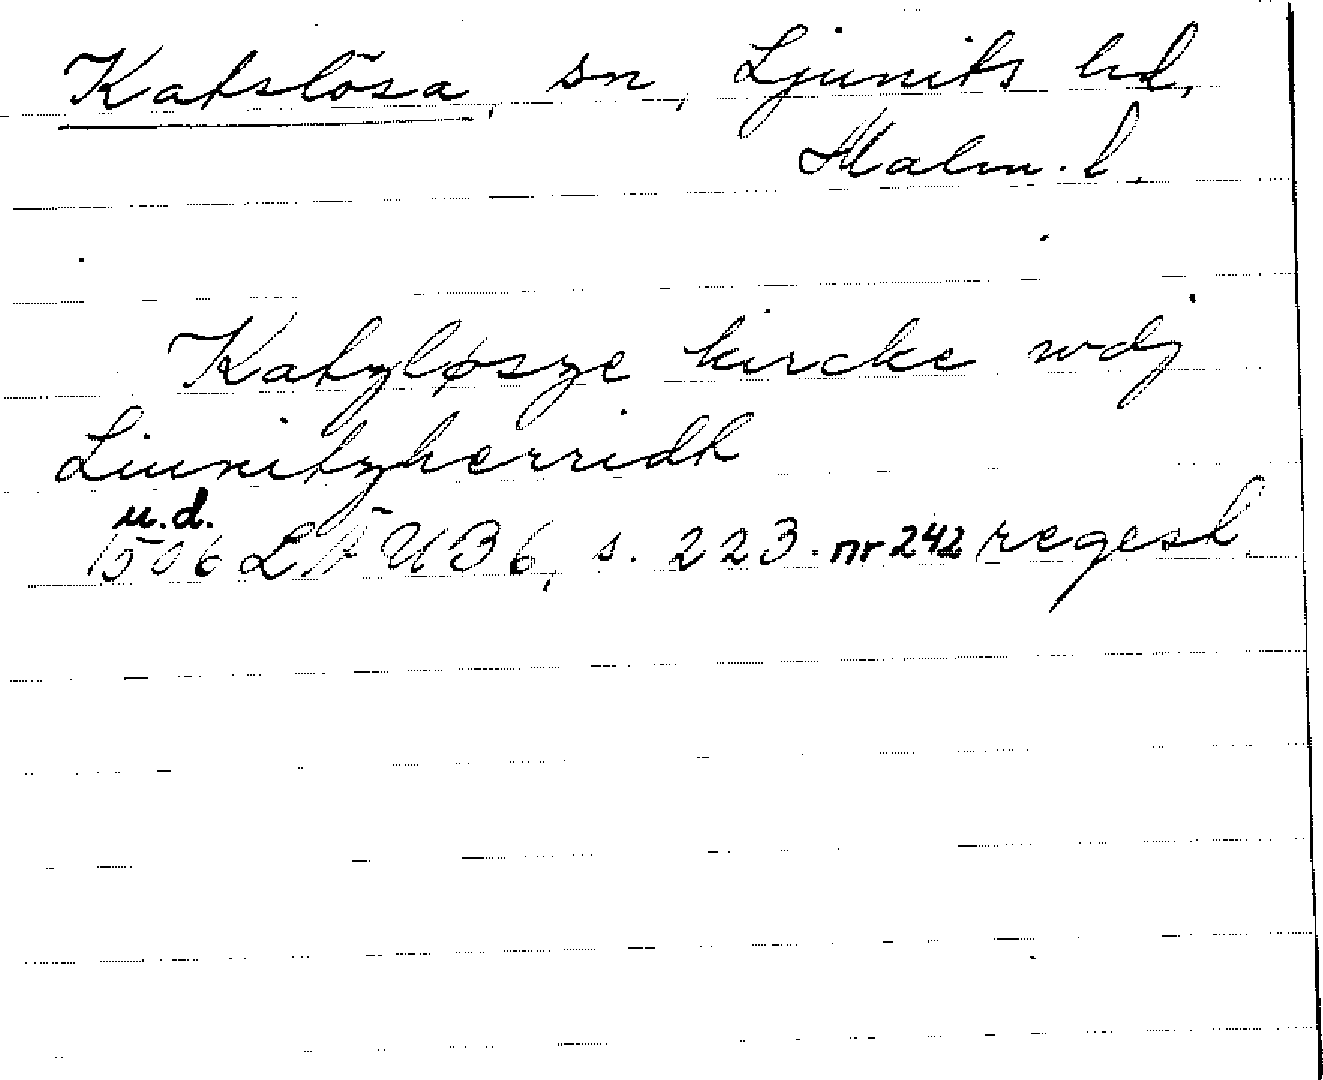 Katslösa, sn, Ljunits hd,
Malm. l.
Katzløsze kircke wdj
Liunitzherridh
u.d.
1506 LÄUB 6, s. 223. nr 242 regest